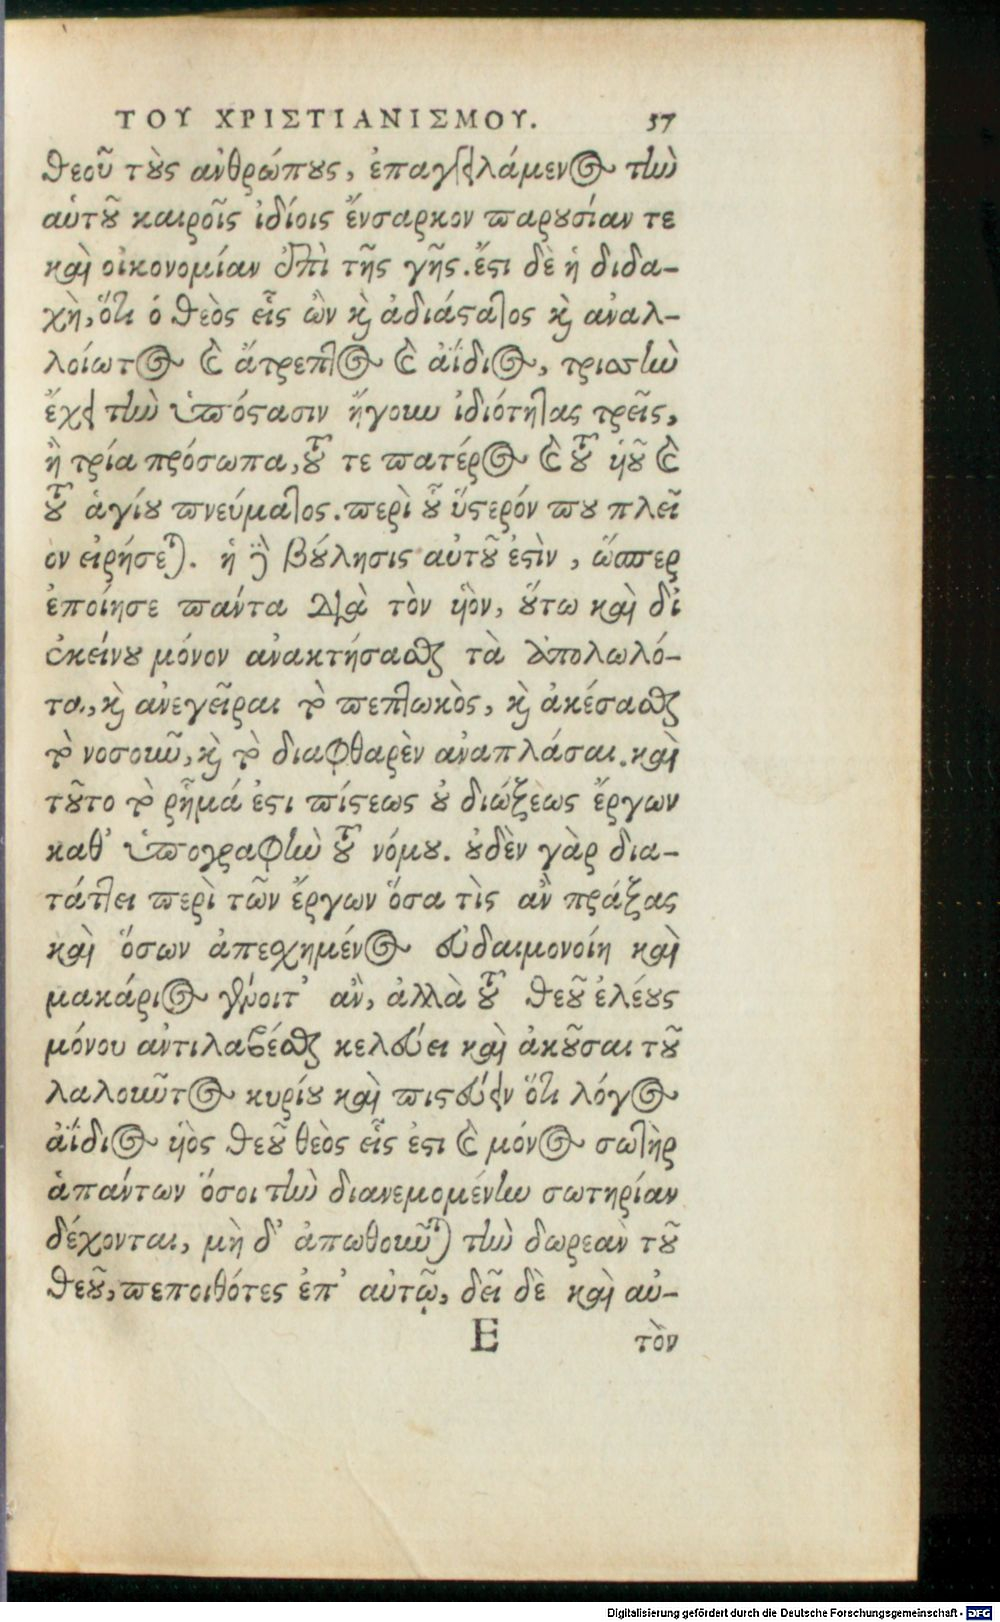 ΤΟΥ ΧΡΙΣΤΙΑΝΙΣΜΟΥ. 57
θεοῦ τοὺς ἀνθρώπους, ἐπαγγειλάμενος τὴν
αὑτοῦ καιροῖς ἰδίοις ἔνσαρκον παρουσίαν τε
καὶ οἰκονομίαν ἐπὶ τῆς γῆς. ἔστι δὲ ἡ διδα-
χὴ, ὅτι ὁ θεὸς εἷς ὢν καὶ ἀδιάστατος καὶ ἀναλ-
λοίωτος καὶ ἄτρεπτος καὶ ἀΐδιος, τριστὴν
ἔχει τὴν ὑπόστασιν ἤγουν ἰδιότητας τρεῖς,
ἢ τρία πρόσωπα, τοῦ τε πατέρος καὶ τοῦ ἡοῦ καὶ
τοῦ ἁγίου πνεύματος. περὶ οὗ ὕστερόν που πλεῖ
ον εἰρήσεται. ἡ δὲ βούλησις αὐτοῦ ἐστὶν, ὥσπερ
ἐποίησε πάντα διὰ τὸν ἡὸν, οὕτω καὶ δι
ἐκείνου μόνον ἀνακτήσασθαι τὰ ἀπολωλό-
τα, καὶ ἀνεγεῖραι τὸ πεπτωκὸς, καὶ ἀκέσασθαι
τὸ νοσοῦν, καὶ τὸ διαφθαρὲν ἀναπλάσαι. καὶ
τοῦτο τὸ ῥῆμά ἐστι πίστεως οὐ διώξεως ἔργων
καθ' ὑπογραφὴν τοῦ νόμου. οὐδὲν γὰρ δια-
τάττει περὶ τῶν ἔργων ὅσα τὶς ἂν πράξας
καὶ ὅσων ἀπεσχημένος εὐδαιμονοίη καὶ
μακάριος γένοιτ' ἂν, ἀλλὰ τοῦ θεοῦ ἐλέους
μόνου ἀντιλαβέσθαι κελεύει καὶ ἀκοῦσαι τοῦ
λαλοῦντος κυρίου καὶ πιστεύειν ὅτι λόγος
ἀΐδιος ἡὸς θεοῦ θεὸς εἷς ἐστι καὶ μόνος σωτὴρ
ἁπάντων ὅσοι τὴν διανεμομένην σωτηρίαν
δέχονται, μὴ δ' ἀπωθοῦνται τὴν δωρεὰν τοῦ
θεοῦ, πεποιθότες ἐπ' αὐτῷ, δεῖ δὲ καὶ αὐ-
E τὸν
Digitalisierung gefördert durch die Deutsche Forschungsgemeinschaft - DFG